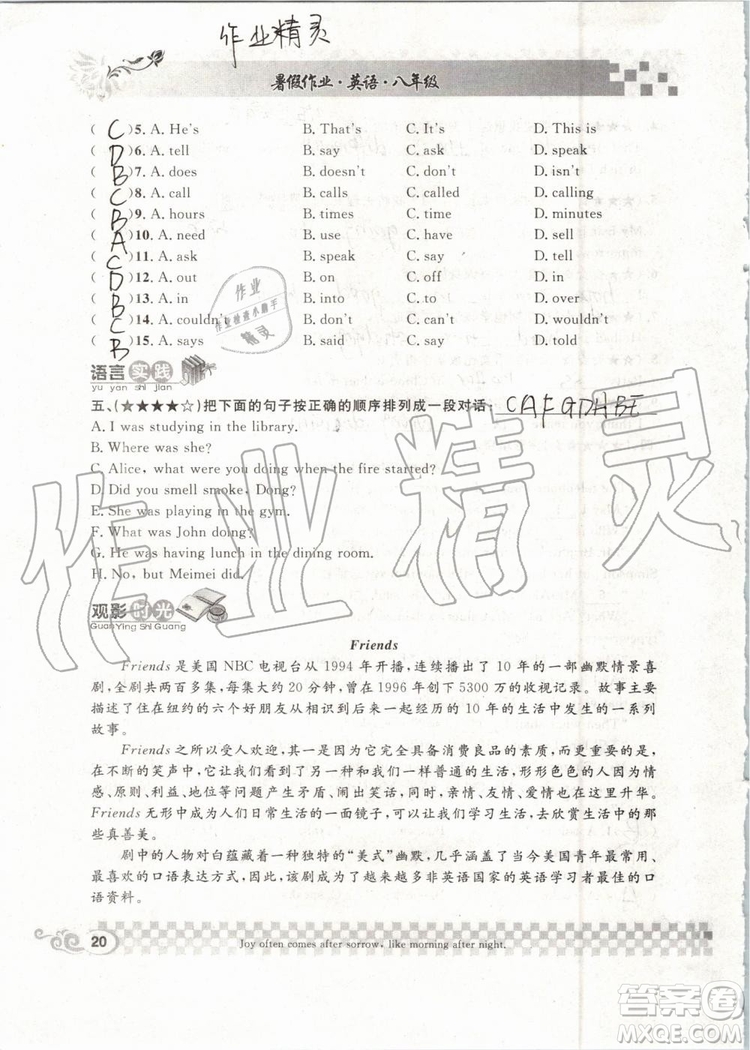 作业精灵
暑假作业·英语·八年级
( C )5. A. He's B. That's C. It's D. This is
( D )6. A. tell B. say C. ask D. speak
( B )7. A. does B. doesn't C. don't D. isn't
( C )8. A. call B. calls C. called D. calling
( B )9. A. hours B. times C. time D. minutes
( A )10. A. need B. use C. have D. sell
( C )11. A. ask B. speak C. say D. tell
( D )12. A. out B. on C. off D. in
( B )13. A. in B. into C. to D. over
( C )14. A. couldn't B. can't C. don't D. wouldn't
( B )15. A. says B. said C. say D. told
作业
作业检查小助手
精灵
语言实践
yu yan shi jian
五、(★★★★☆)把下面的句子按正确的顺序排列成一段对话: CAFGDHBE
A. I was studying in the library.
B. Where was she?
C. Alice, what were you doing when the fire started?
D. Did you smell smoke, Dong?
E. She was playing in the gym.
F. What was John doing?
G. He was having lunch in the dining room.
H. No, but Meimei did.
作业精灵
观影时光
Guan Ying Shi Guang
Friends
Friends 是美国 NBC 电视台从 1994 年开播,连续播出了 10 年的一部幽默情景喜
剧,全剧共两百多集,每集大约 20 分钟,曾在 1996 年创下 5300 万的收视记录。故事主要
描述了住在纽约的六个好朋友从相识到后来一起经历的 10 年的生活中发生的一系列
故事。
Friends 之所以受人欢迎,其一是因为它完全具备消费良品的素质,而更为重要的是,
在不断的笑声中,它与我们一样有着普通的生活,形形色色的人物因为情
感、原则、利益、地位等问题产生了矛盾,同时,亲情、友情、爱情也在这里升华。
Friends 无形中成为人们日常生活的一面镜子,让我们学习生活,去欣赏生活中的那
些真善美。
剧中的人物对白蕴藏着一种独特的“美式”幽默,几乎涵盖了当今美国青年最常用、
最喜欢的口语表达方式,因此,该剧成为了越来越多非英语国家的英语学习者最佳的口
语资料。
20
Joy often comes after sorrow, like morning after night.
答案圈
MXQE.COM